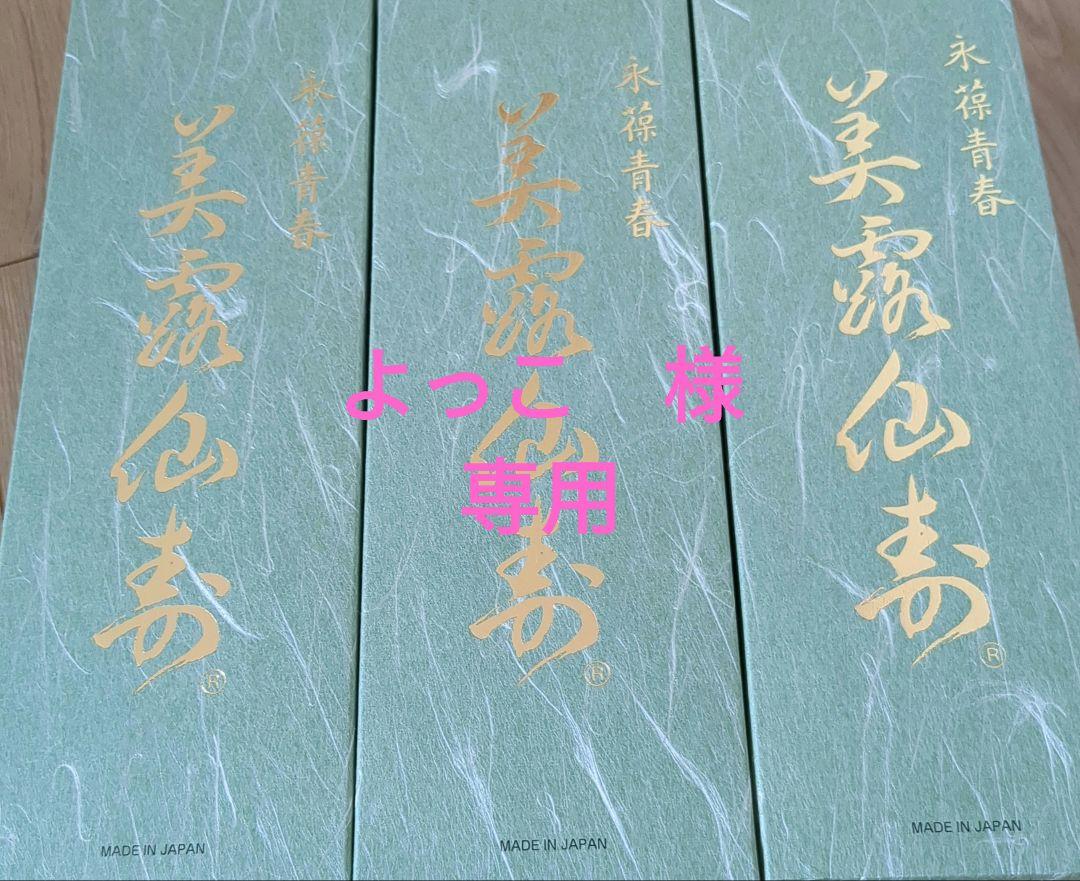 永葆青春
美露仙寿
®
MADE IN JAPAN
永葆青春
美露仙寿
®
MADE IN JAPAN
永葆青春
美露仙寿
®
MADE IN JAPAN
よっこ 様
専用